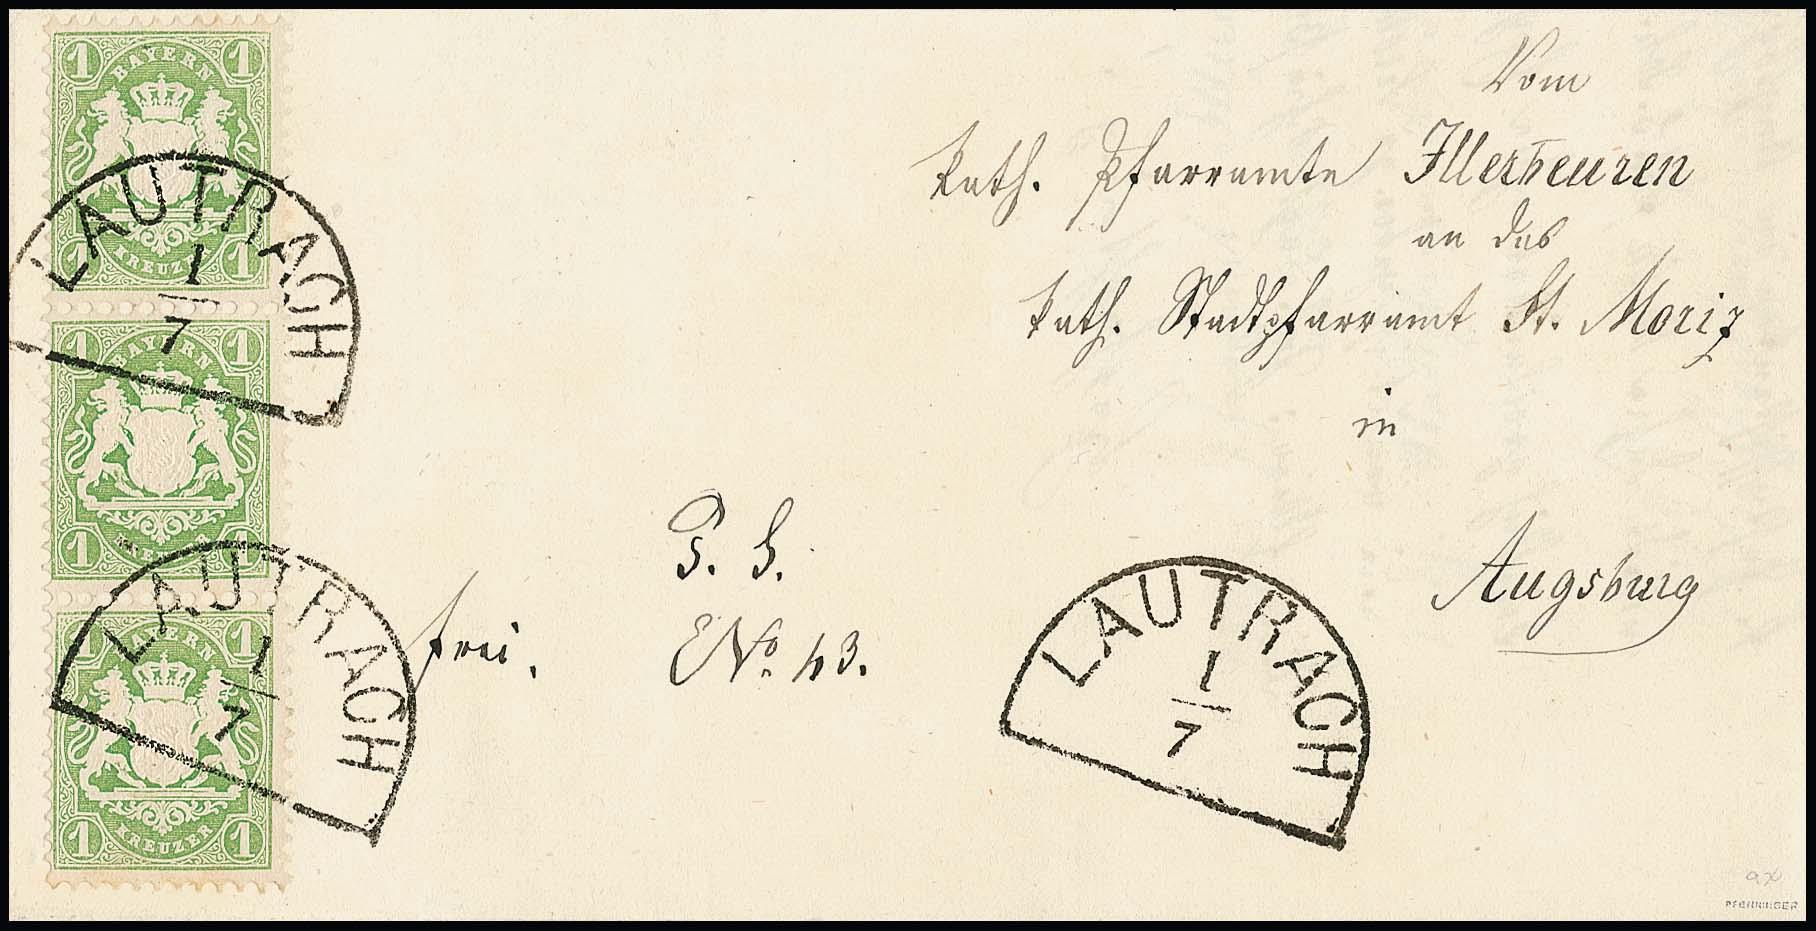 1 BAYERN 1
1 KREUZER 1
LAUTRACH
1
7
1 BAYERN 1
1 KREUZER 1
LAUTRACH
1
7
1 BAYERN 1
1 KREUZER 1
Vom
kath. Pfarramte Illerbeuren
an das
kath. Stadtpfarramt St. Moriz
in
Augsburg
frei.
No. 43.
LAUTRACH
1
7
PFENNINGER